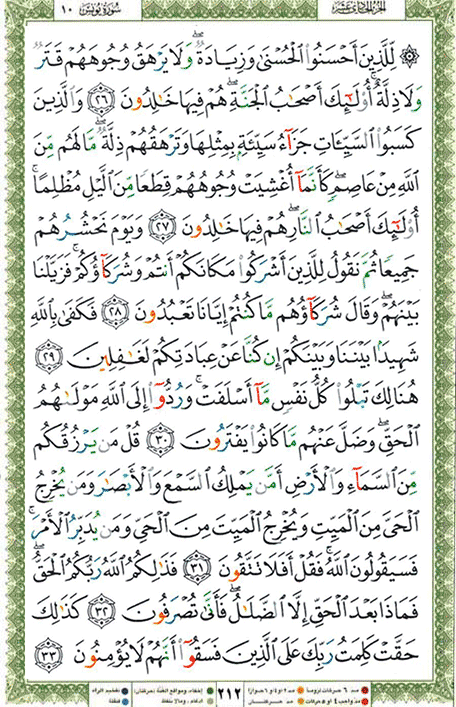 سُورَةُ يُونُسَ ١٠
الجزء الحادي عشر
۞ لِّلَّذِينَ أَحْسَنُوا۟ ٱلْحُسْنَىٰ وَزِيَادَةٌ ۖ وَلَا يَرْهَقُ وُجُوهَهُمْ قَتَرٌ
وَلَا ذِلَّةٌ ۚ أُو۟لَٰٓئِكَ أَصْحَٰبُ ٱلْجَنَّةِ ۖ هُمْ فِيهَا خَٰلِدُونَ ٢٦ وَٱلَّذِينَ
كَسَبُوا۟ ٱلسَّيِّـَٔاتِ جَزَآءُ سَيِّئَةٍۭ بِمِثْلِهَا وَتَرْهَقُهُمْ ذِلَّةٌ ۖ مَّا لَهُم مِّنَ
ٱللَّهِ مِنْ عَاصِمٍ ۖ كَأَنَّمَآ أُغْشِيَتْ وُجُوهُهُمْ قِطَعًا مِّنَ ٱلَّيْلِ مُظْلِمًا ۚ
أُو۟لَٰٓئِكَ أَصْحَٰبُ ٱلنَّارِ ۖ هُمْ فِيهَا خَٰلِدُونَ ٢٧ وَيَوْمَ نَحْشُرُهُمْ
جَمِيعًا ثُمَّ نَقُولُ لِلَّذِينَ أَشْرَكُوا۟ مَكَانَكُمْ أَنتُمْ وَشُرَكَآؤُكُمْ ۚ فَزَيَّلْنَا
بَيْنَهُمْ ۖ وَقَالَ شُرَكَآؤُهُم مَّا كُنتُمْ إِيَّانَا تَعْبُدُونَ ٢٨ فَكَفَىٰ بِٱللَّهِ
شَهِيدًۢا بَيْنَنَا وَبَيْنَكُمْ إِن كُنَّا عَنْ عِبَادَتِكُمْ لَغَٰفِلِينَ ٢٩
هُنَالِكَ تَبْلُوا۟ كُلُّ نَفْسٍ مَّآ أَسْلَفَتْ ۚ وَرُدُّوٓا۟ إِلَى ٱللَّهِ مَوْلَىٰهُمُ
ٱلْحَقِّ ۖ وَضَلَّ عَنْهُم مَّا كَانُوا۟ يَفْتَرُونَ ٣٠ قُلْ مَن يَرْزُقُكُم
مِّنَ ٱلسَّمَآءِ وَٱلْأَرْضِ أَمَّن يَمْلِكُ ٱلسَّمْعَ وَٱلْأَبْصَٰرَ وَمَن يُخْرِجُ
ٱلْحَىَّ مِنَ ٱلْمَيِّتِ وَيُخْرِجُ ٱلْمَيِّتَ مِنَ ٱلْحَىِّ وَمَن يُدَبِّرُ ٱلْأَمْرَ ۚ
فَسَيَقُولُونَ ٱللَّهُ ۚ فَقُلْ أَفَلَا تَتَّقُونَ ٣١ فَذَٰلِكُمُ ٱللَّهُ رَبُّكُمُ ٱلْحَقُّ ۖ
فَمَاذَا بَعْدَ ٱلْحَقِّ إِلَّا ٱلضَّلَٰلُ ۖ فَأَنَّىٰ تُصْرَفُونَ ٣٢ كَذَٰلِكَ
حَقَّتْ كَلِمَتُ رَبِّكَ عَلَى ٱلَّذِينَ فَسَقُوٓا۟ أَنَّهُمْ لَا يُؤْمِنُونَ ٣٣
٢١٢